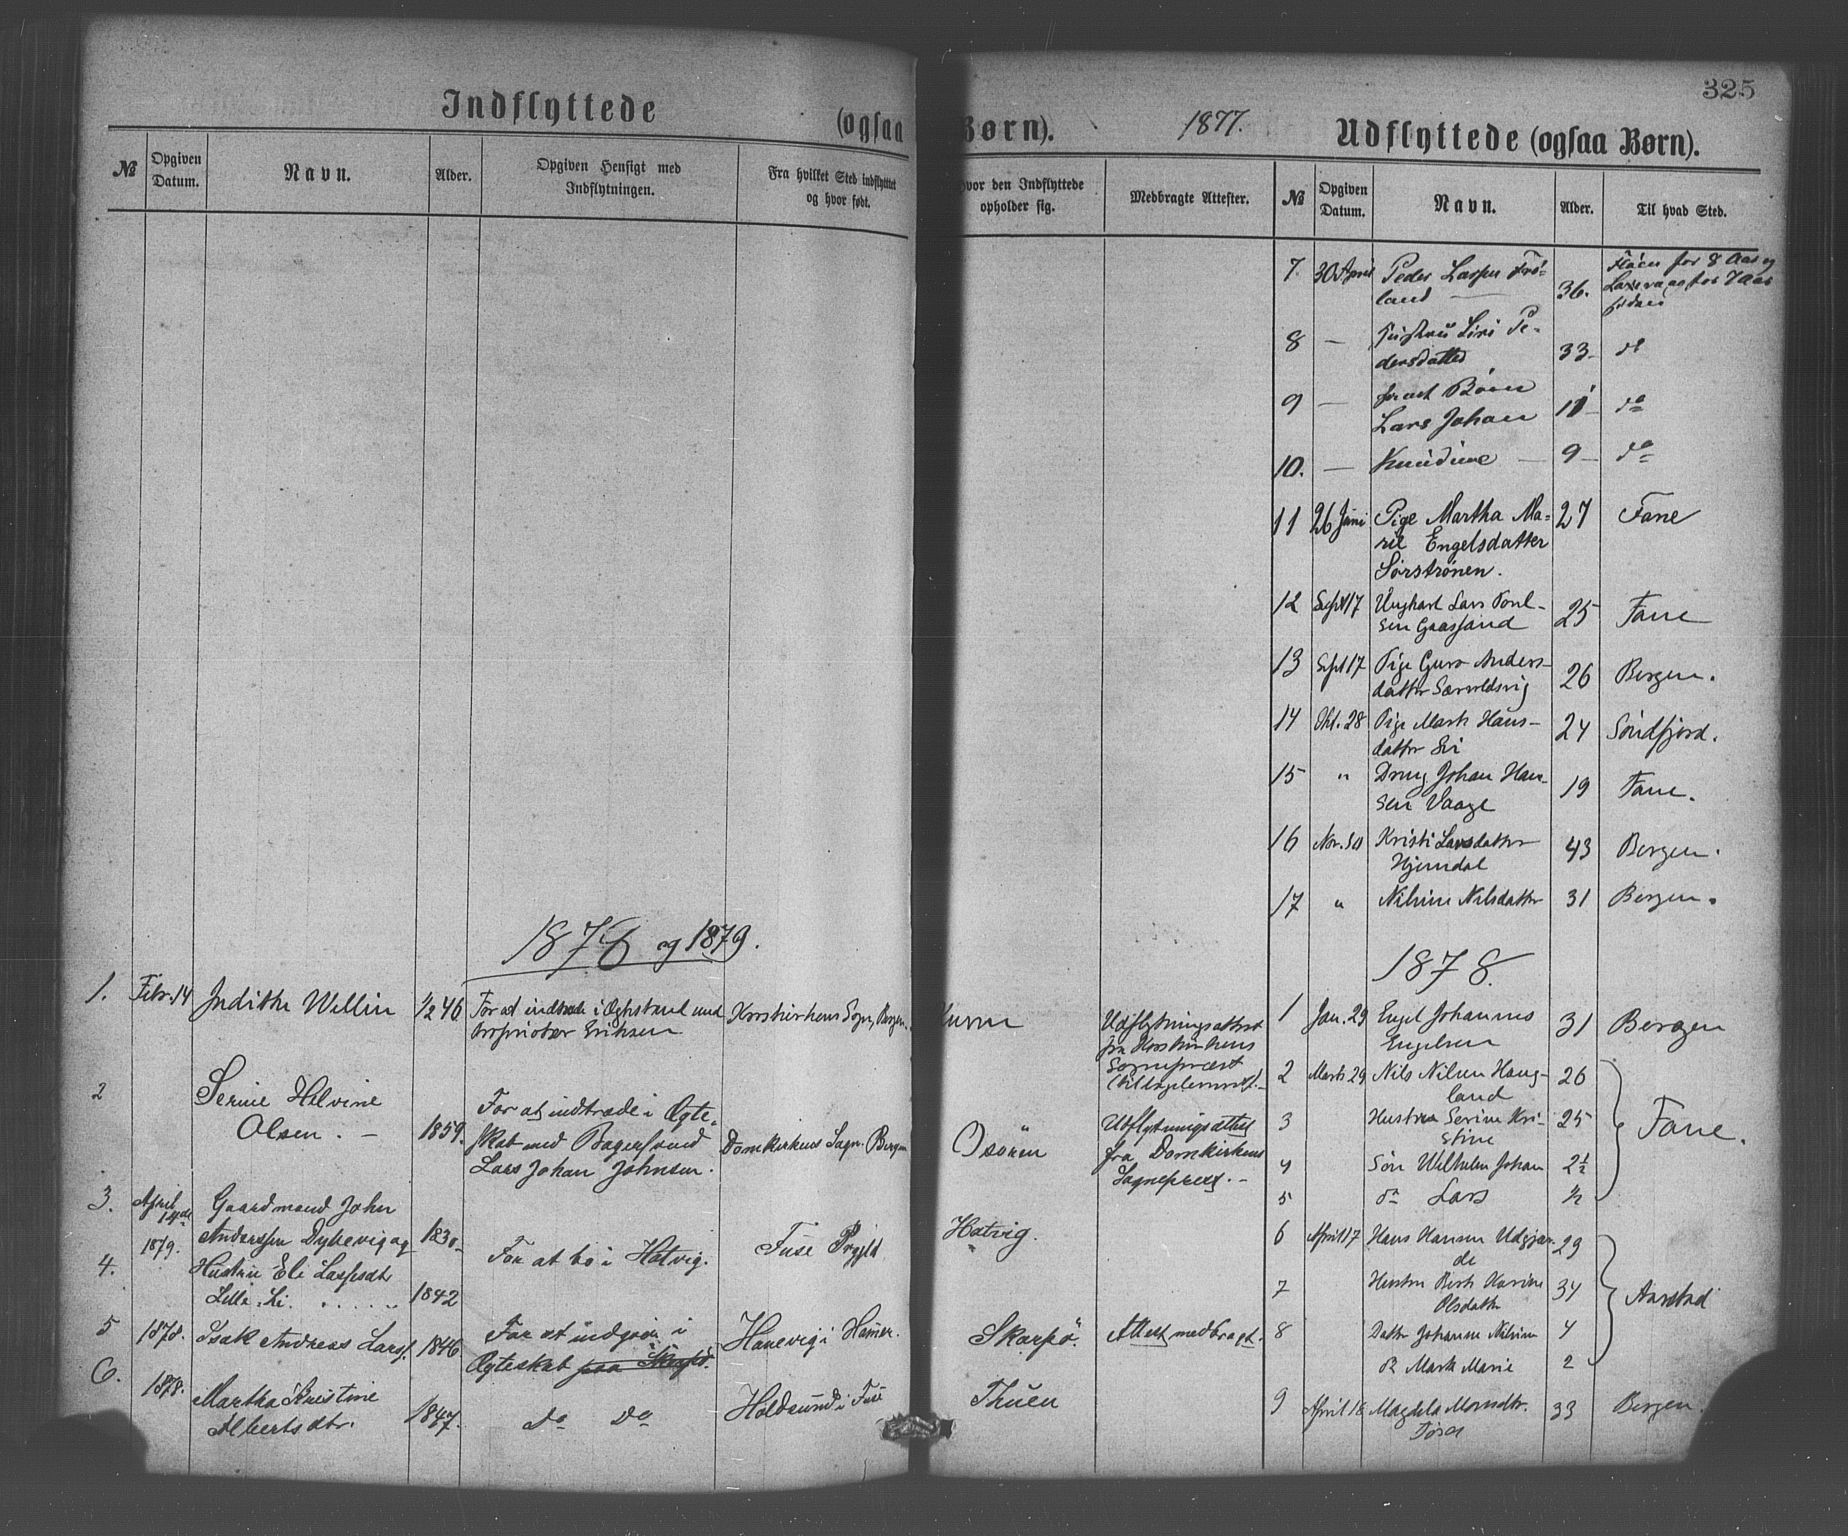 325
Indflyttede (ogsaa Børn).
1877.
Udflyttede (ogsaa Børn).
№ Opgiven Datum. Navn. Alder. Opgiven Hensigt med Indflytningen. Fra hvilket Sted indflyttet og hvor født. hvor den Indflyttede opholder sig. Medbragte Attester.
№ Opgiven Datum. Navn. Alder. Til hvad Sted.
7. 30 April Peder Larsen Frø-
land 36. for 8 Aar og
for 7 Aar
siden
8 — Hustru Siri Pe-
dersdatter 33 — do
9 — samt Børn
Lars Johan 11 — do
10. — Knudine — 9 — do
11 26 Juni Pige Martha Ma- 27 Fane
rie Engelsdatter
Sørstrønen.
12 Sept 17 Ungkarl Lars Poul-
sen 25 Fane
13 Sept 17 Pige Guro Anders-
datter 26 Bergen.
14 Okt. 28 Pige Mart. Hans- 24 Søndfjord.
datter Li
15 " Dreng Johan Han-
sen Vaage 19 Fane.
16 Nov. 30 Kristi Larsdatter 43 Bergen.
Hjemdal
17 " Nilsine Nilsdatter 31 Bergen.
1878 og 1879.
1. Febr. 14 Judithe Willin 1/2 46 For at indtræde i Ægtestand med Korskirkens Sogn, Bergen.
Proprietær Eriksen
Udflytningsattest
fra Korskirkens
Sognepræst
2 Serine Halvine
Olsen. — 1859. For at indtræde i Ægte-
skab med Bagersvend Domkirkens Sogn. Bergen Osøren Udflytningsattest
Lars Johan Johnsen. fra Domkirkens
Sognepræst. —
3. April 14de Gaardmand John
1879. Anderssen Dyhevig og 1830 For at bo i Hatvig. Fuse Prgjld Hatvig.
4. Hustru Eli Lassesdtr
Lille-Li. 1842
5 1878. Isak Andreas Larss. 1846 For at indgaa i
Ægteskab paa Skorpø. Hanevig i Hamer. Skorpø Attest medbragt.
6. 1878. Martha Kristine
Albertsdtr. 1847. do do Holdsund i Fuse Thuen
1878.
1 Jan. 29 Engel Johannes 31 Bergen
Engelsen
2 Marts 29 Nils Nilsen Haug- 26
land
3 Hustru Serine Kri- 25
stine Fane.
4 Søn Wilhelm Johan 2 1/2
5 do Lars 1/2
6 April 17 Hans Hansen 29
7 Hustru Berte Karine 34
Olsdatter Aarstad
8 Datter Johanne Nilsine 4
do Marte Marie 2
9 April 18 Magdela 33 Bergen.